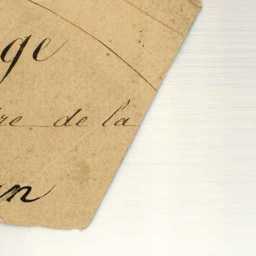 ge
re de la
un